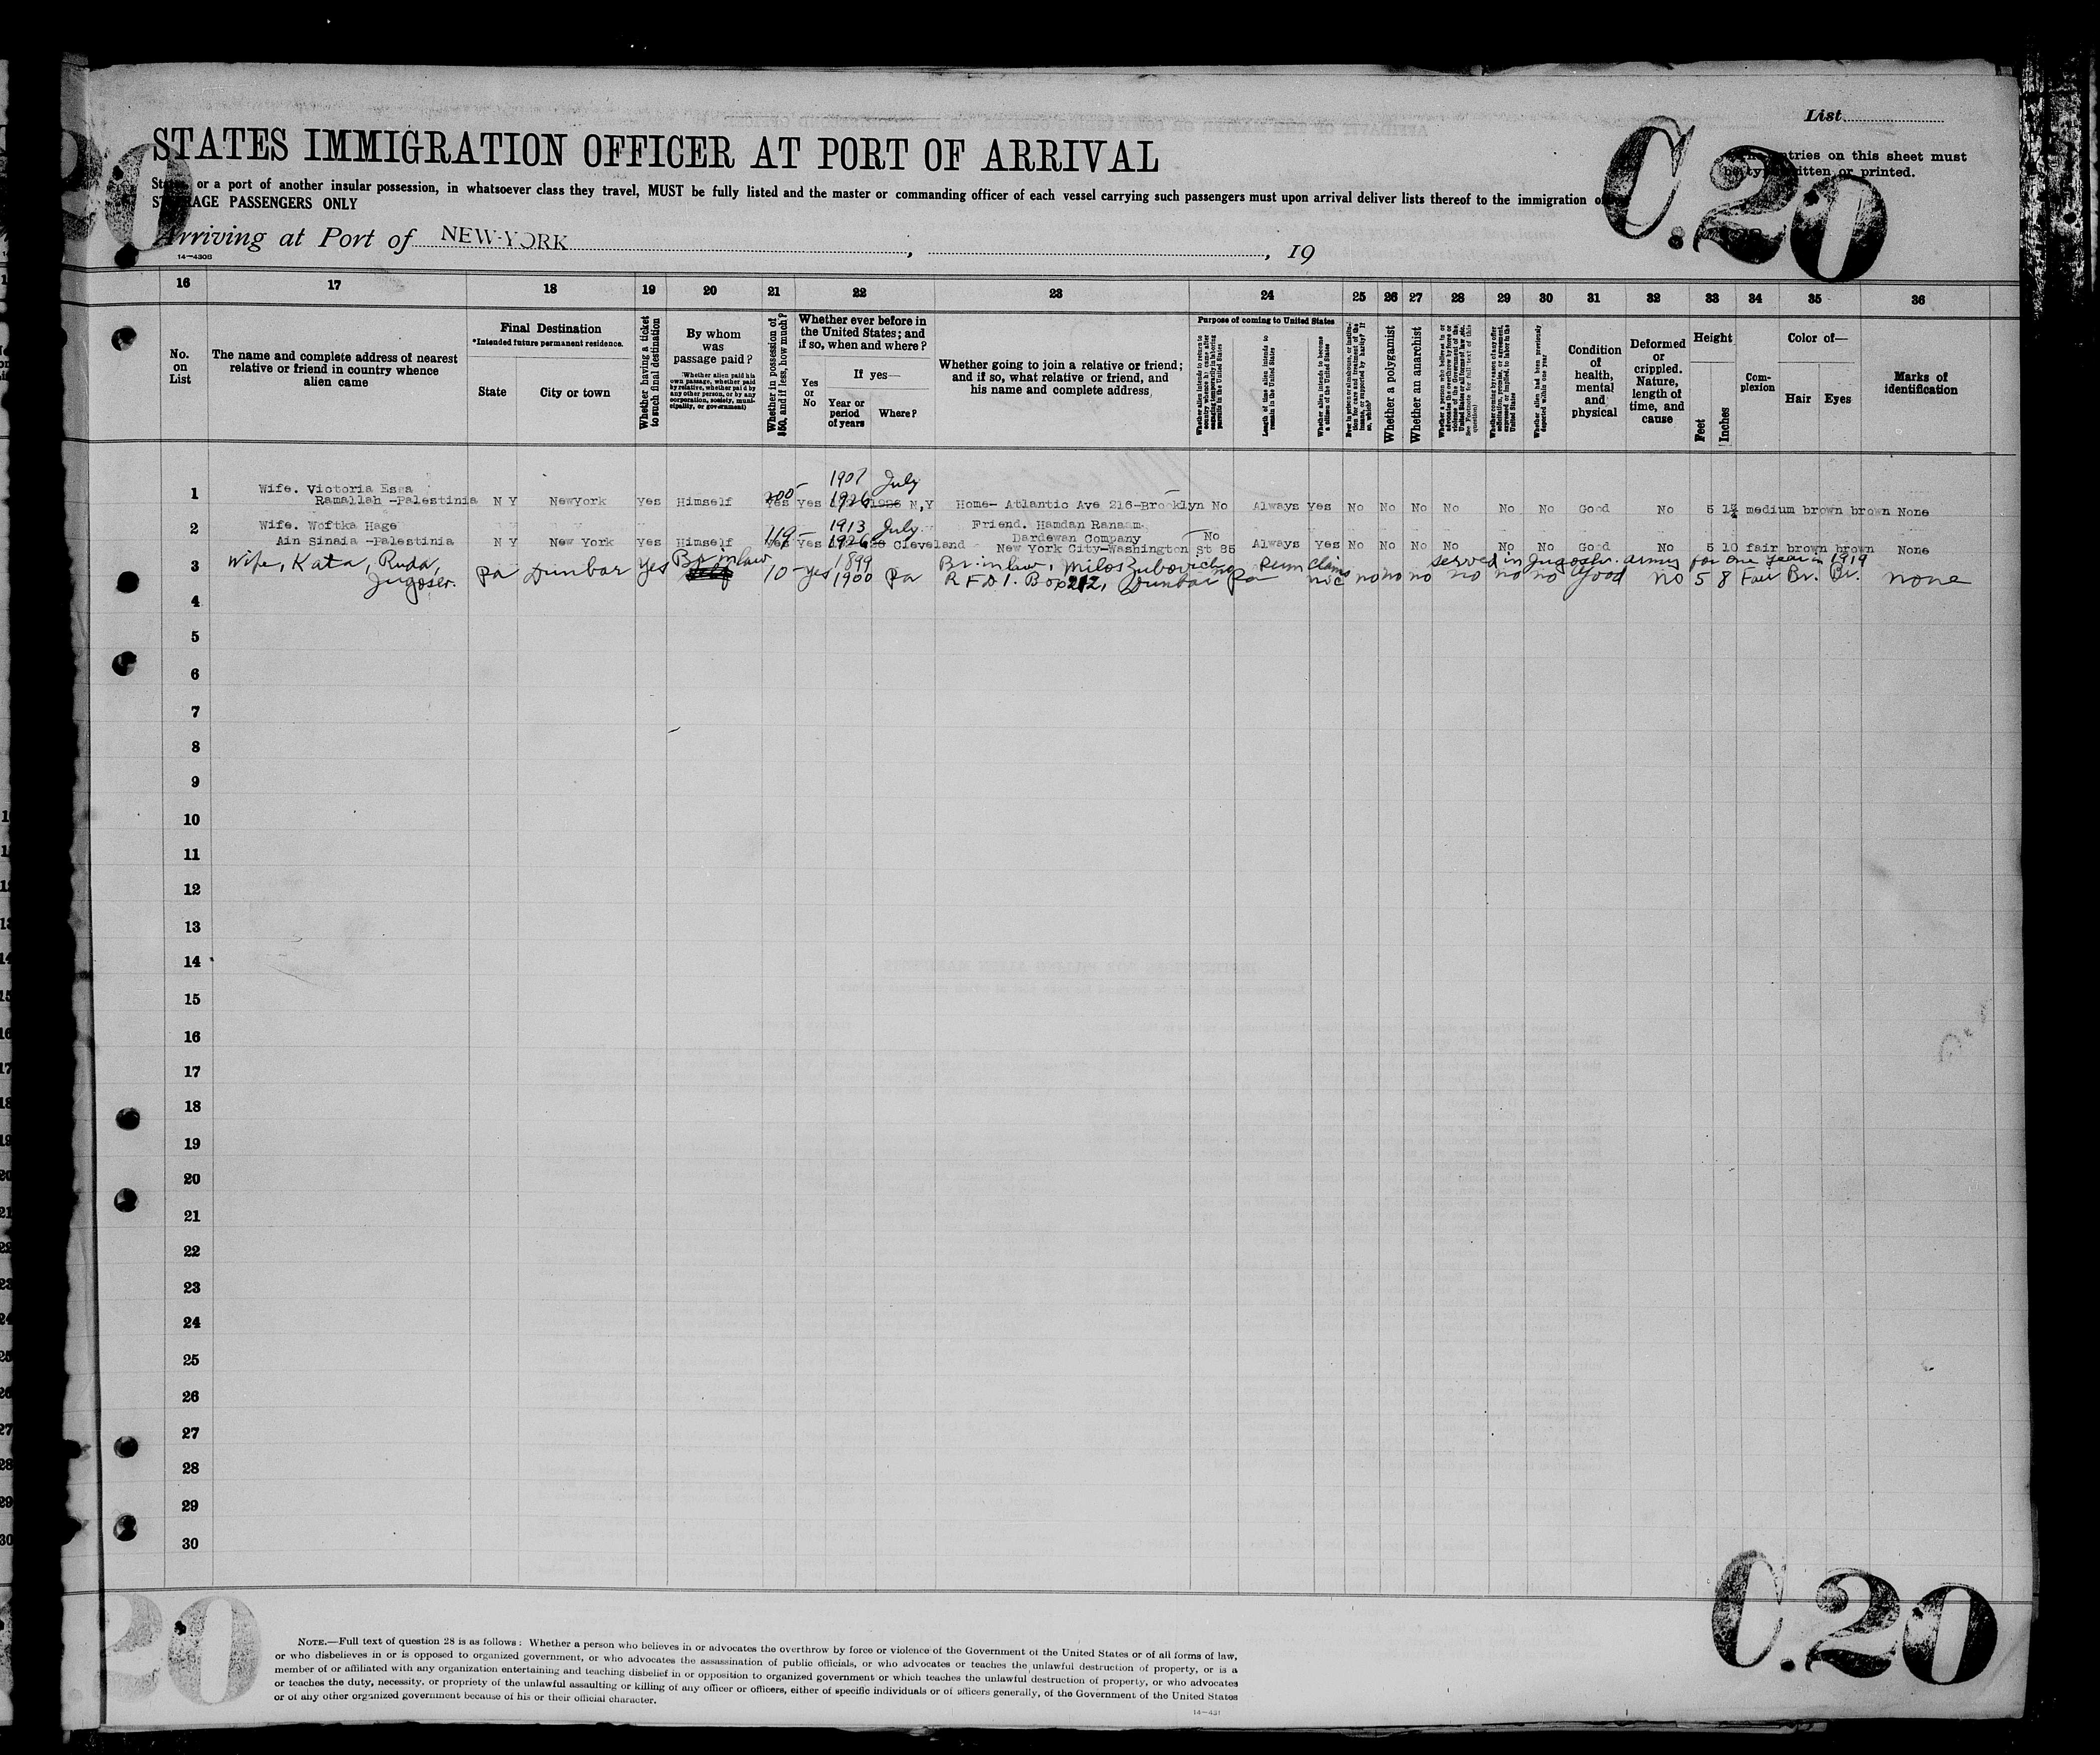 List
STATES IMMIGRATION OFFICER AT PORT OF ARRIVAL
C.20
entries on this sheet must
be typewritten or printed.
States, or a port of another insular possession, in whatsoever class they travel, MUST be fully listed and the master or commanding officer of each vessel carrying such passengers must upon arrival deliver lists thereof to the immigration
STEERAGE PASSENGERS ONLY
Arriving at Port of NEW-YORK , , 19
14—430B
16 17 18 19 20 21 22 23 24 25 26 27 28 29 30 31 32 33 34 35 36
No. on List
The name and complete address of nearest relative or friend in country whence alien came
Final Destination
*Intended future permanent residence.
State
City or town
Whether having a ticket to such final destination
By whom was passage paid?
Whether alien paid his own passage, whether paid by relative, whether paid by any other person, or by any corporation, society, municipality, or government)
Whether in possession of $50, and if less, how much?
Whether ever before in the United States; and if so, when and where?
Yes or No
If yes—
Year or period of years
Where?
Whether going to join a relative or friend; and if so, what relative or friend, and his name and complete address
Purpose of coming to United States
Length of time alien intends to remain in the United States
Whether alien intends to become a citizen of the United States
Whether a polygamist
Whether an anarchist
Whether alien had been previously deported within one year
Condition of health, mental and physical
Deformed or crippled. Nature, length of time, and cause
Height
Feet
Inches
Complexion
Color of—
Hair
Eyes
Marks of identification
1907 July
Wife. Victoria Essa
1 Ramallah -Palestinia N Y NewYork Yes Himself 200- Yes Yes 1926 1926 N,Y Home- Atlantic Ave 216-Brooklyn No Always Yes No No No No No No Good No 5 medium brown brown None
2 Wife. Woftka Hage 119- 1913 July Friend. Hamdan Ranaam
Ain Sinaia -Palestinia N Y New York Yes Himself Yes Yes 1926 Cleveland Dardewan Company
New York City-Washington St 85 No Always Yes No No No No No No Good No 5 10 fair brown brown None
3 Wife, Kata, Ruda, Br in law 1899 Br. in law, Milos Zubovich no Perm claims served in Jugoslv. army for one year in 1919
Jugoser. Pa Dunbar yes 10- yes 1900 Pa R F D 1. Box 212, Dunbar Pa no no no no no no Good no 5 8 Fair Br. Br. none
4
5
6
7
8
9
10
11
12
13
14
15
16
17
18
19
20
21
22
23
24
25
26
27
28
29
30
C.20
NOTE.—Full text of question 28 is as follows: Whether a person who believes in or advocates the overthrow by force or violence of the Government of the United States or of all forms of law,
or who disbelieves in or is opposed to organized government, or who advocates the assassination of public officials, or who advocates or teaches the unlawful destruction of property, or is a
member of or affiliated with any organization entertaining and teaching disbelief in or opposition to organized government or which teaches the unlawful destruction of property, or who advocates
or teaches the duty, necessity, or propriety of the unlawful assaulting or killing of any officer or officers, either of specific individuals or of officers generally, of the Government of the United States
or of any other organized government because of his or their official character.
14—431